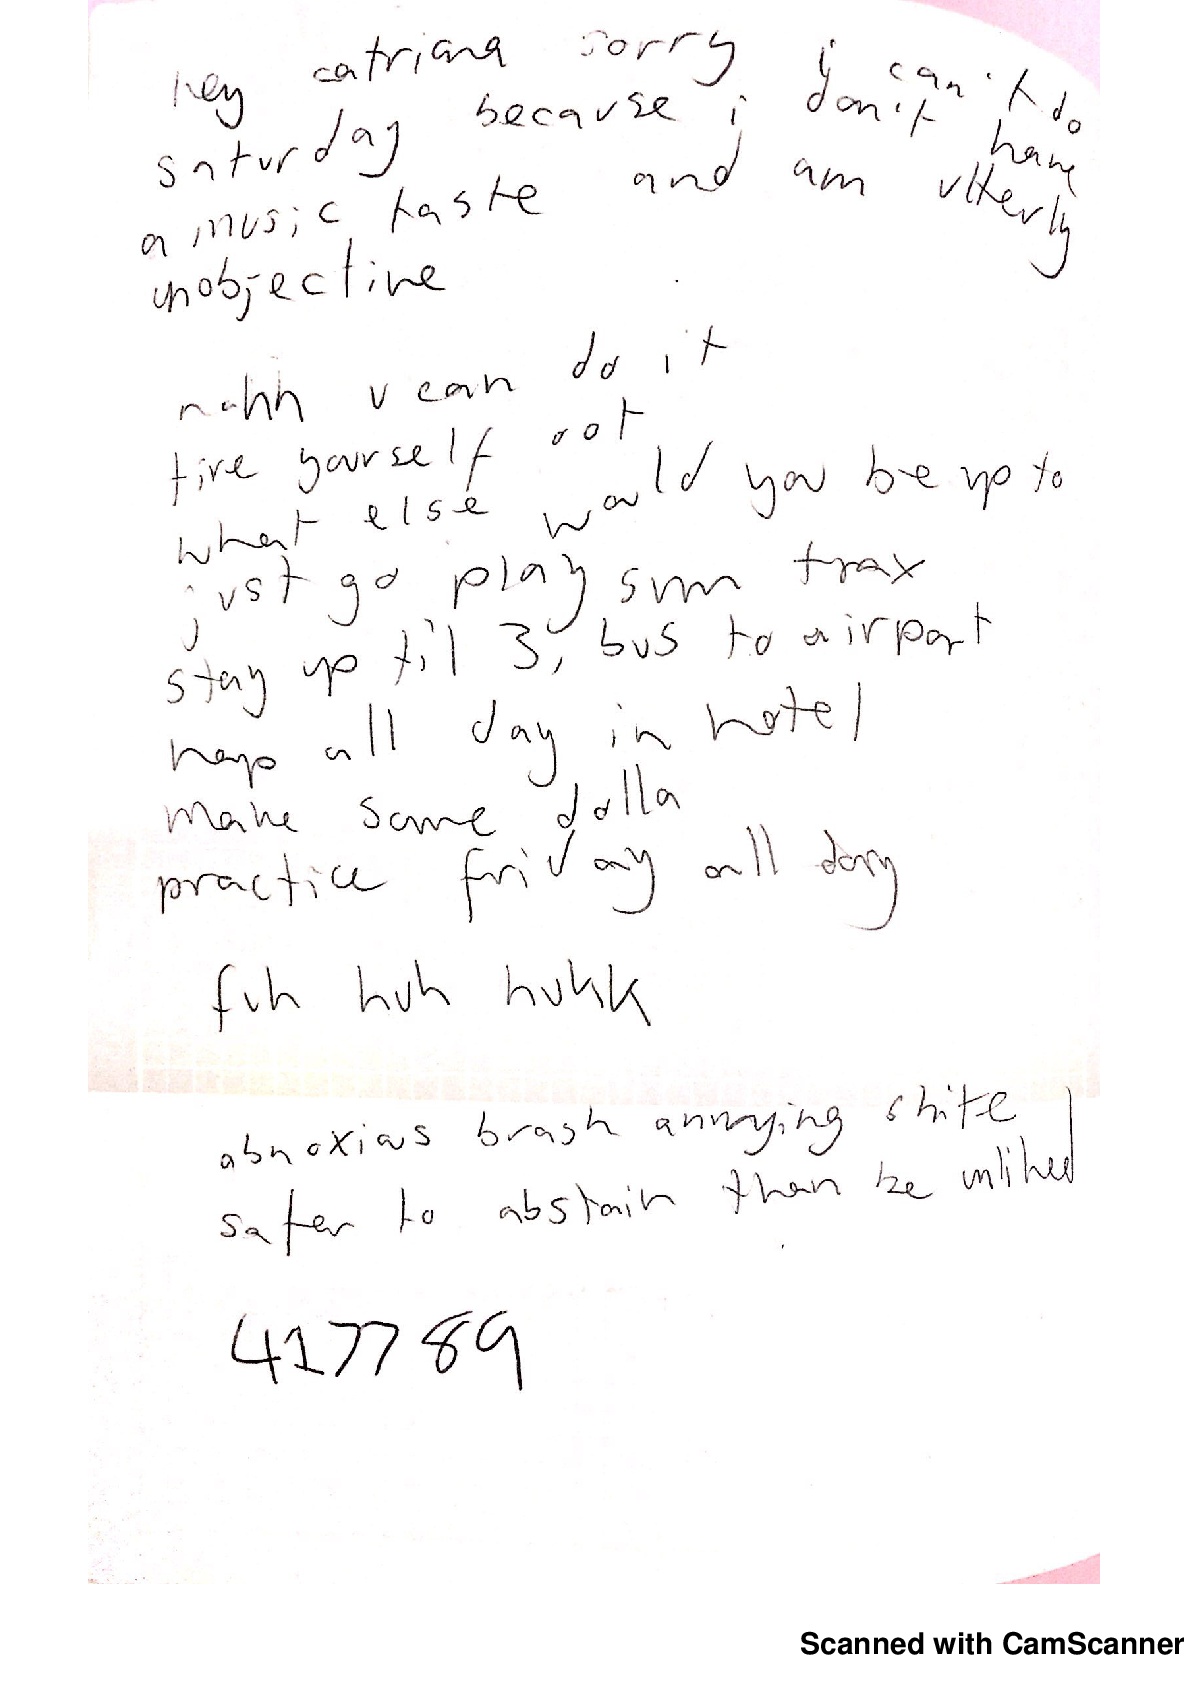 hey catriana sorry i can't do
saturday because i don't have
a music taste and am utterly
unobjective
nahh u can do it
tire yourself oot
what else would you be up to
just go play sum trax
stay up til 3, bus to airport
nap all day in hotel
make some dolla
practice friday all day
fuh huh hukk
abnoxias brash annoying shite
safer to abstain than be unliked
417789
Scanned with CamScanner